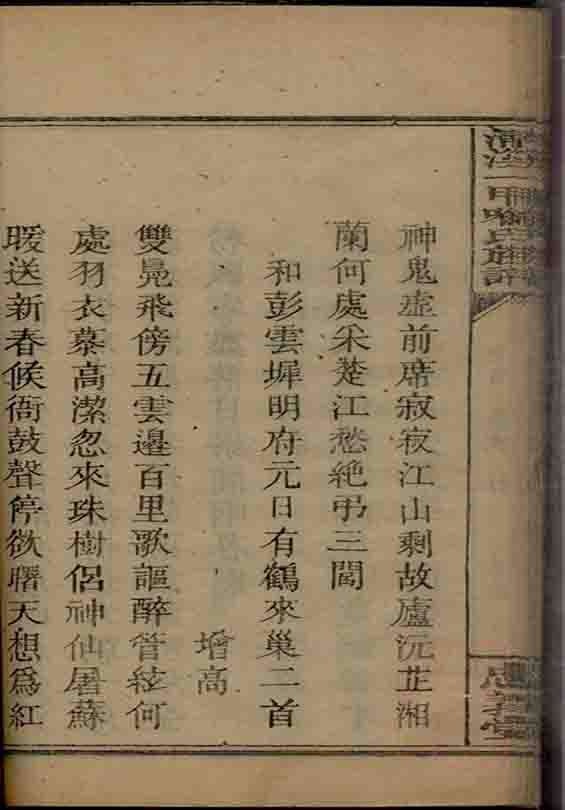 甲喻氏族譜
神鬼虛前席寂寂江山剩故廬沅芷湘
蘭何處采楚江愁絕弔三閭
和彭雲墀明府元日有鶴來巢二首
增高
雙鳧飛傍五雲邊百里歌謳醉管絃何
處羽衣慕高潔忽來珠樹侶神仙屠蘇
暖送新春候衙鼓聲停欲曙天想爲紅